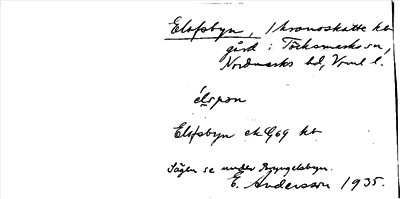 Elofsbyn, 1 kronoskatte hem
gård i Töcksmarks sn,
Nordmarks hd, Vrml l.
élspɔn
Elofsbyn ek Q69 kb
Sägen se under Byngelsbyn.
E. Andersson 1935.